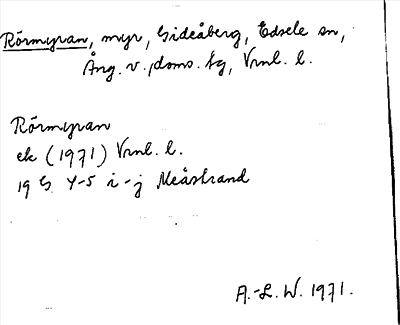 Rörmyran, myr, Gideåberg, Edsele sn,
Ång. v. doms. tg, Vrnl. l.
Rörmyran
ek (1971) Vrnl. l.
19 G 4-5 i-j Meåstrand
A.-L. W. 1971.